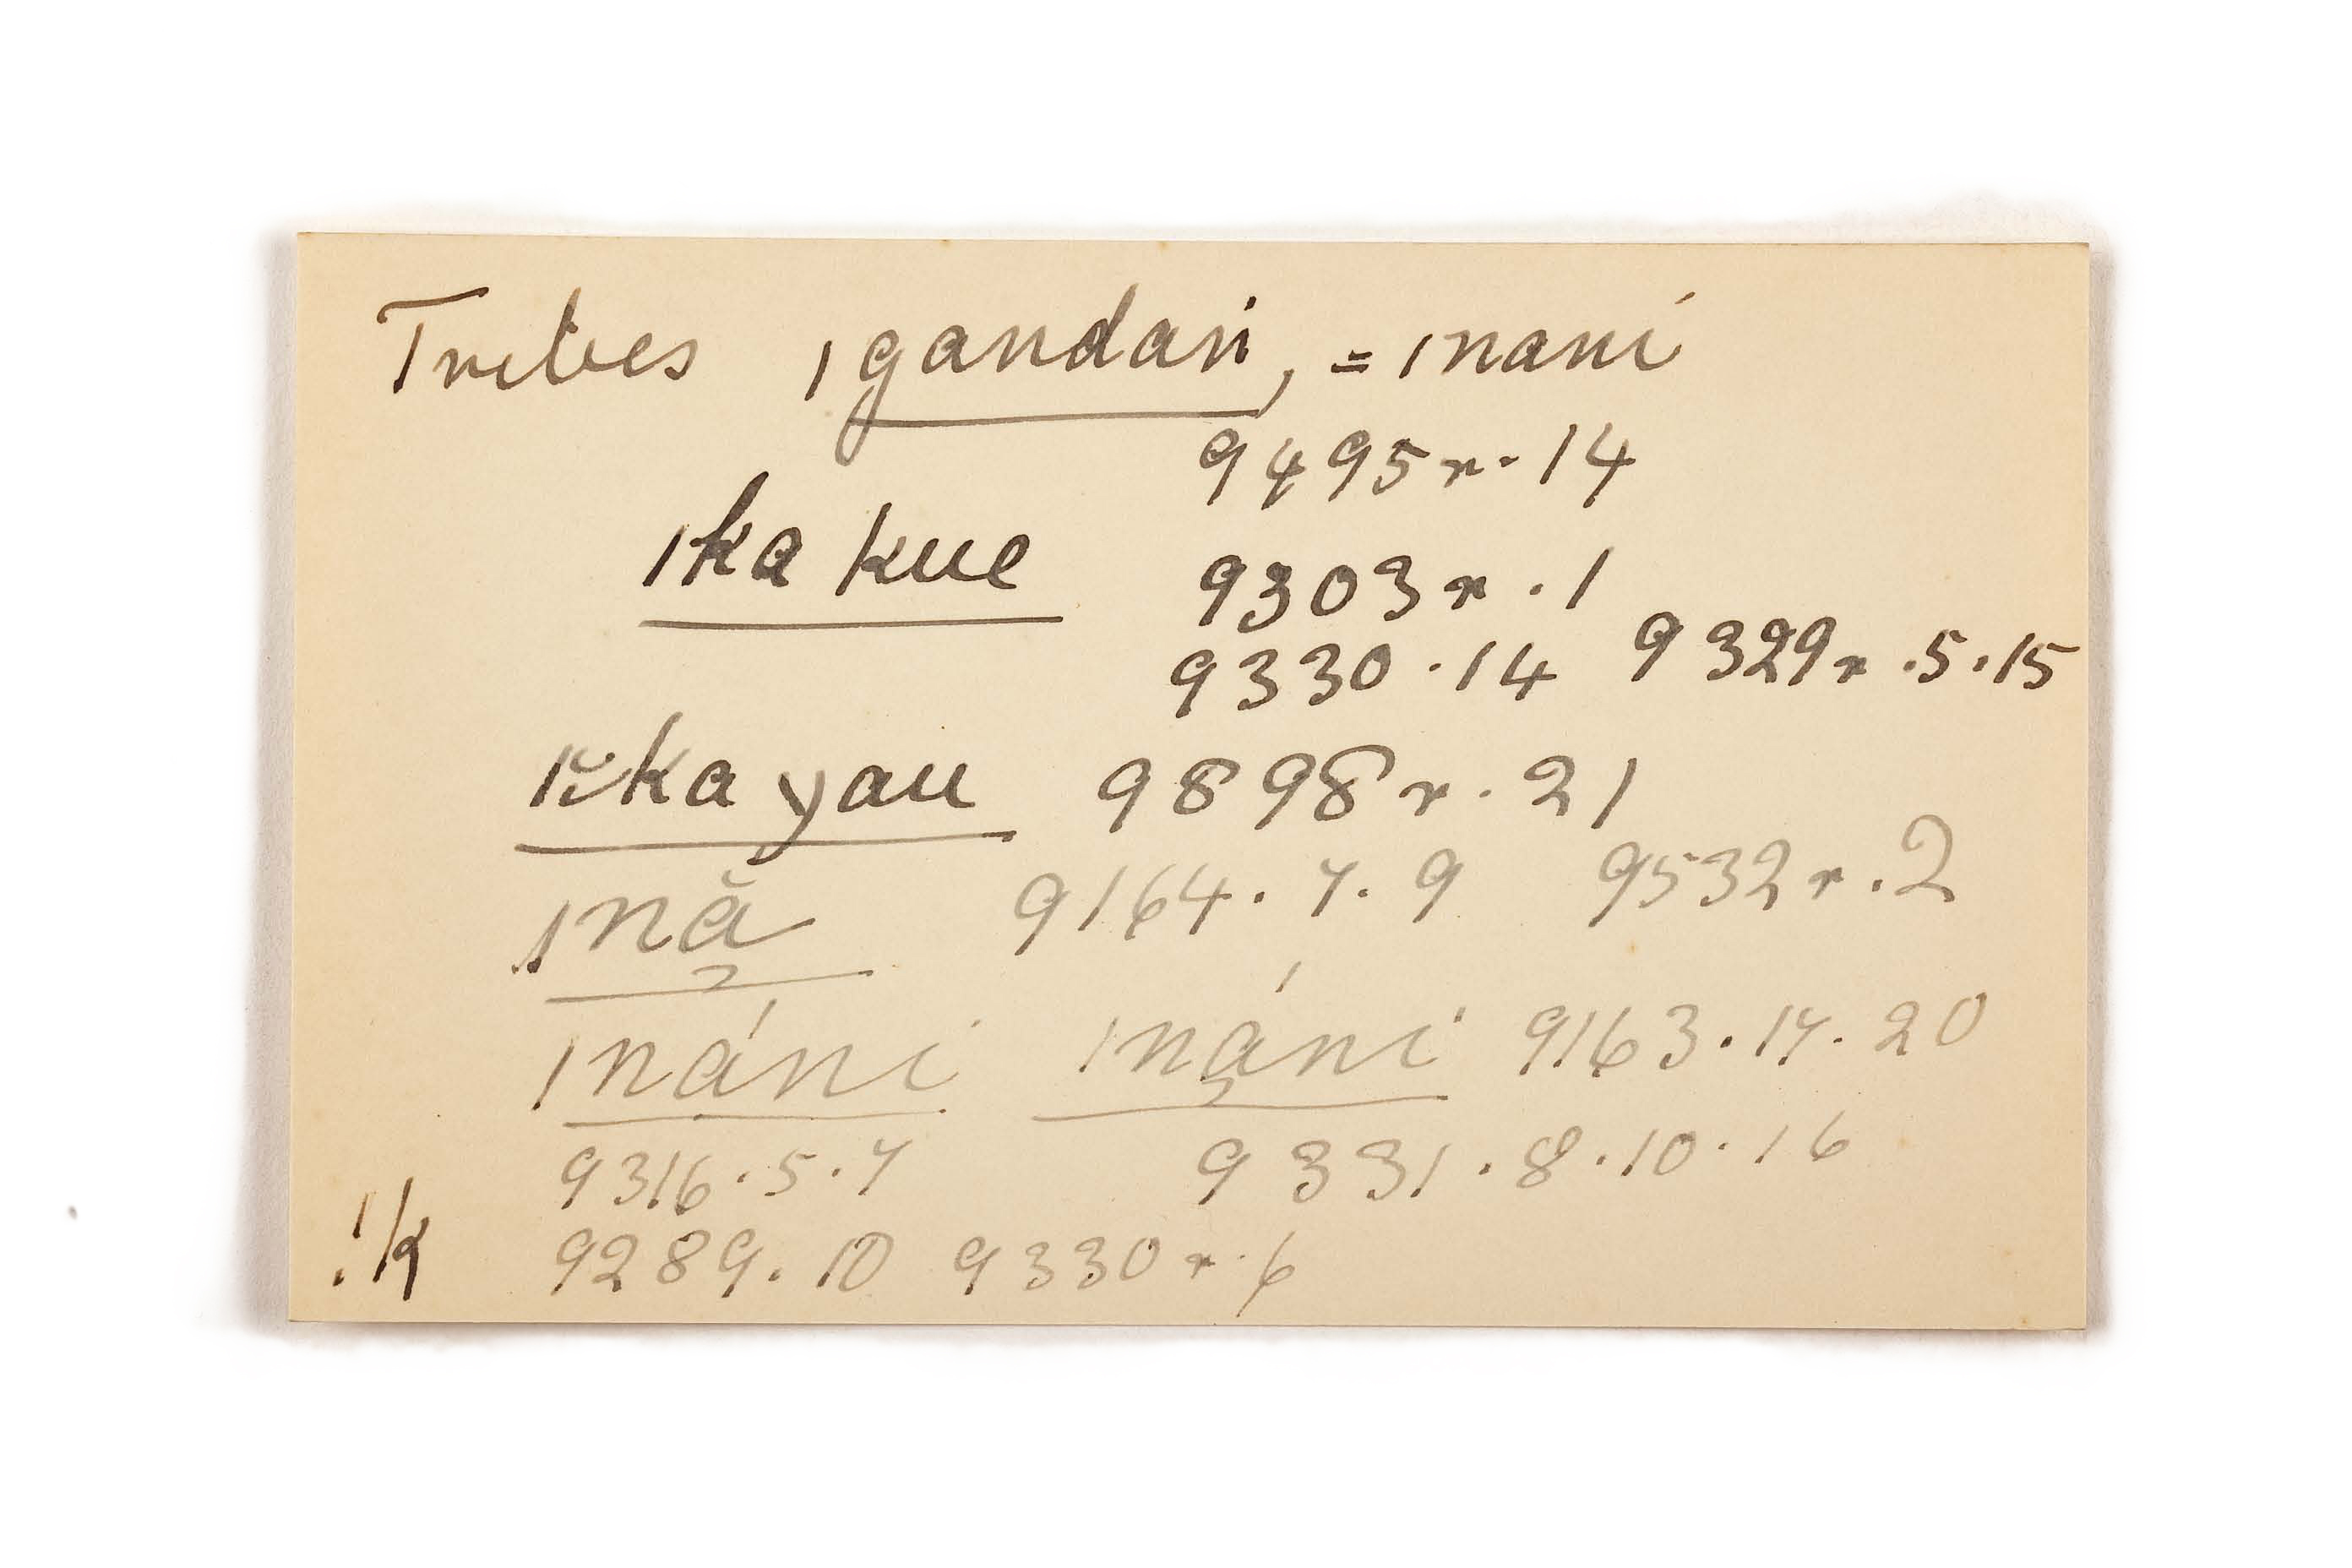 Tribes ǀgandari, = ǀnani
9495r·14
ǀka kue 9303r·1
9330·14 9329r·5·15
ǀka yau 9898r·21
ǀnã 9164·7·9 9532r·2
ǀnáni ǀnáni 9163·17·20
9316·5·7 9331·8·10·16
!k 9289·10 9330r·6